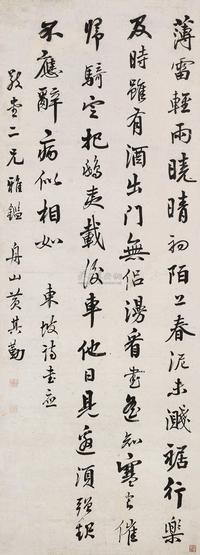 薄雷輕雨曉晴初陌上春泥未濺裾行樂
及時雖有酒出門無侶漫看書遙知寒食催
歸騎定把鴟夷載後車他日見邀須強起
不應辭病似相如 東坡詩書應
二兄雅鑑 舟山黃其勤